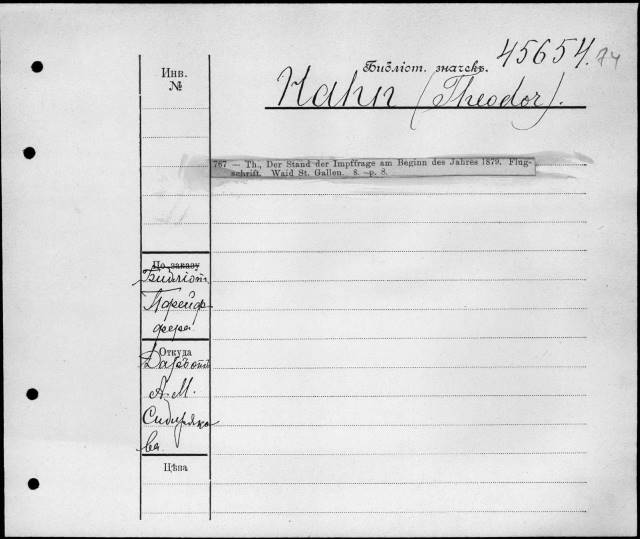 Библіот. значекъ. 45654. 74
Инв.
№
Hahn (Theodor).
767 — Th., Der Stand der Impffrage am Beginn des Jahres 1879. Flug-
schrift. Waid St. Gallen. 8. —p. 8.
По заказу
Библіот.
Пфейф-
фера
Откуда
Даръ отъ
А. М.
Сибиряко-
ва
Цѣна